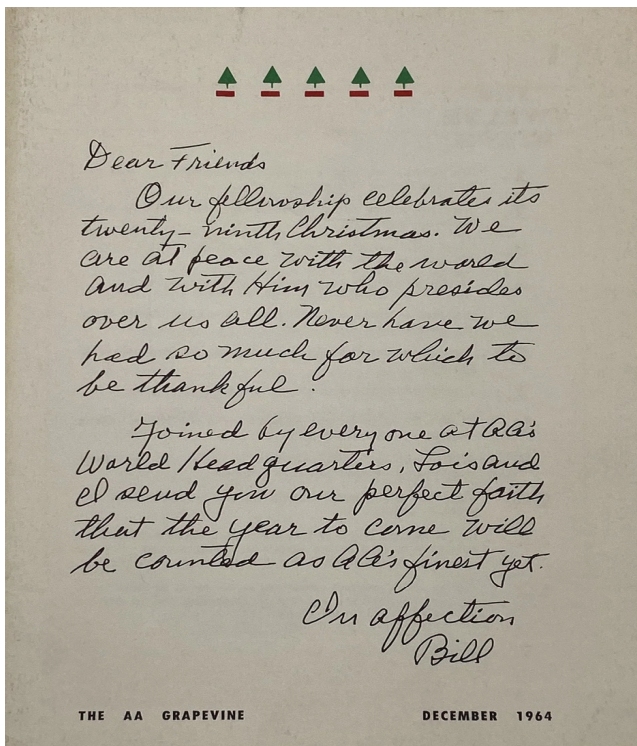 Dear Friends
Our fellowship celebrates its
twenty-ninth Christmas. We
are at peace with the world
and with Him who presides
over us all. Never have we
had so much for which to
be thankful.
Joined by everyone at AA's
World Headquarters, Lois and
I send you our perfect faith
that the year to come will
be counted as AA's finest yet.
In affection
Bill
THE AA GRAPEVINE DECEMBER 1964